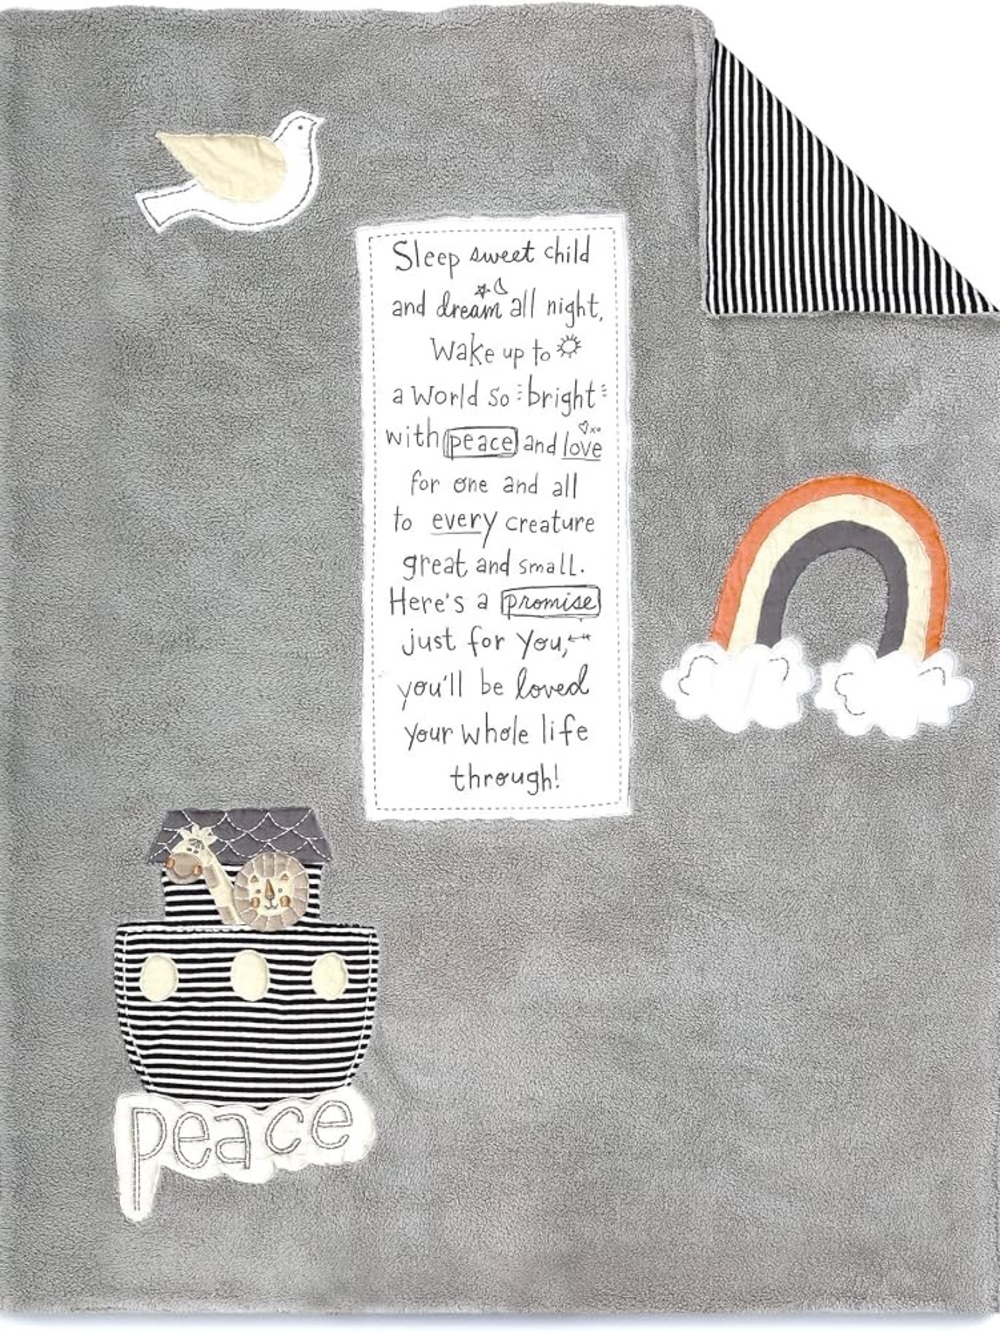 Sleep sweet child
and dream all night,
Wake up to
a World so bright
with peace and love
for one and all
to every creature
great and small.
Here's a promise
just for you,
you'll be loved
your whole life
through!
peace